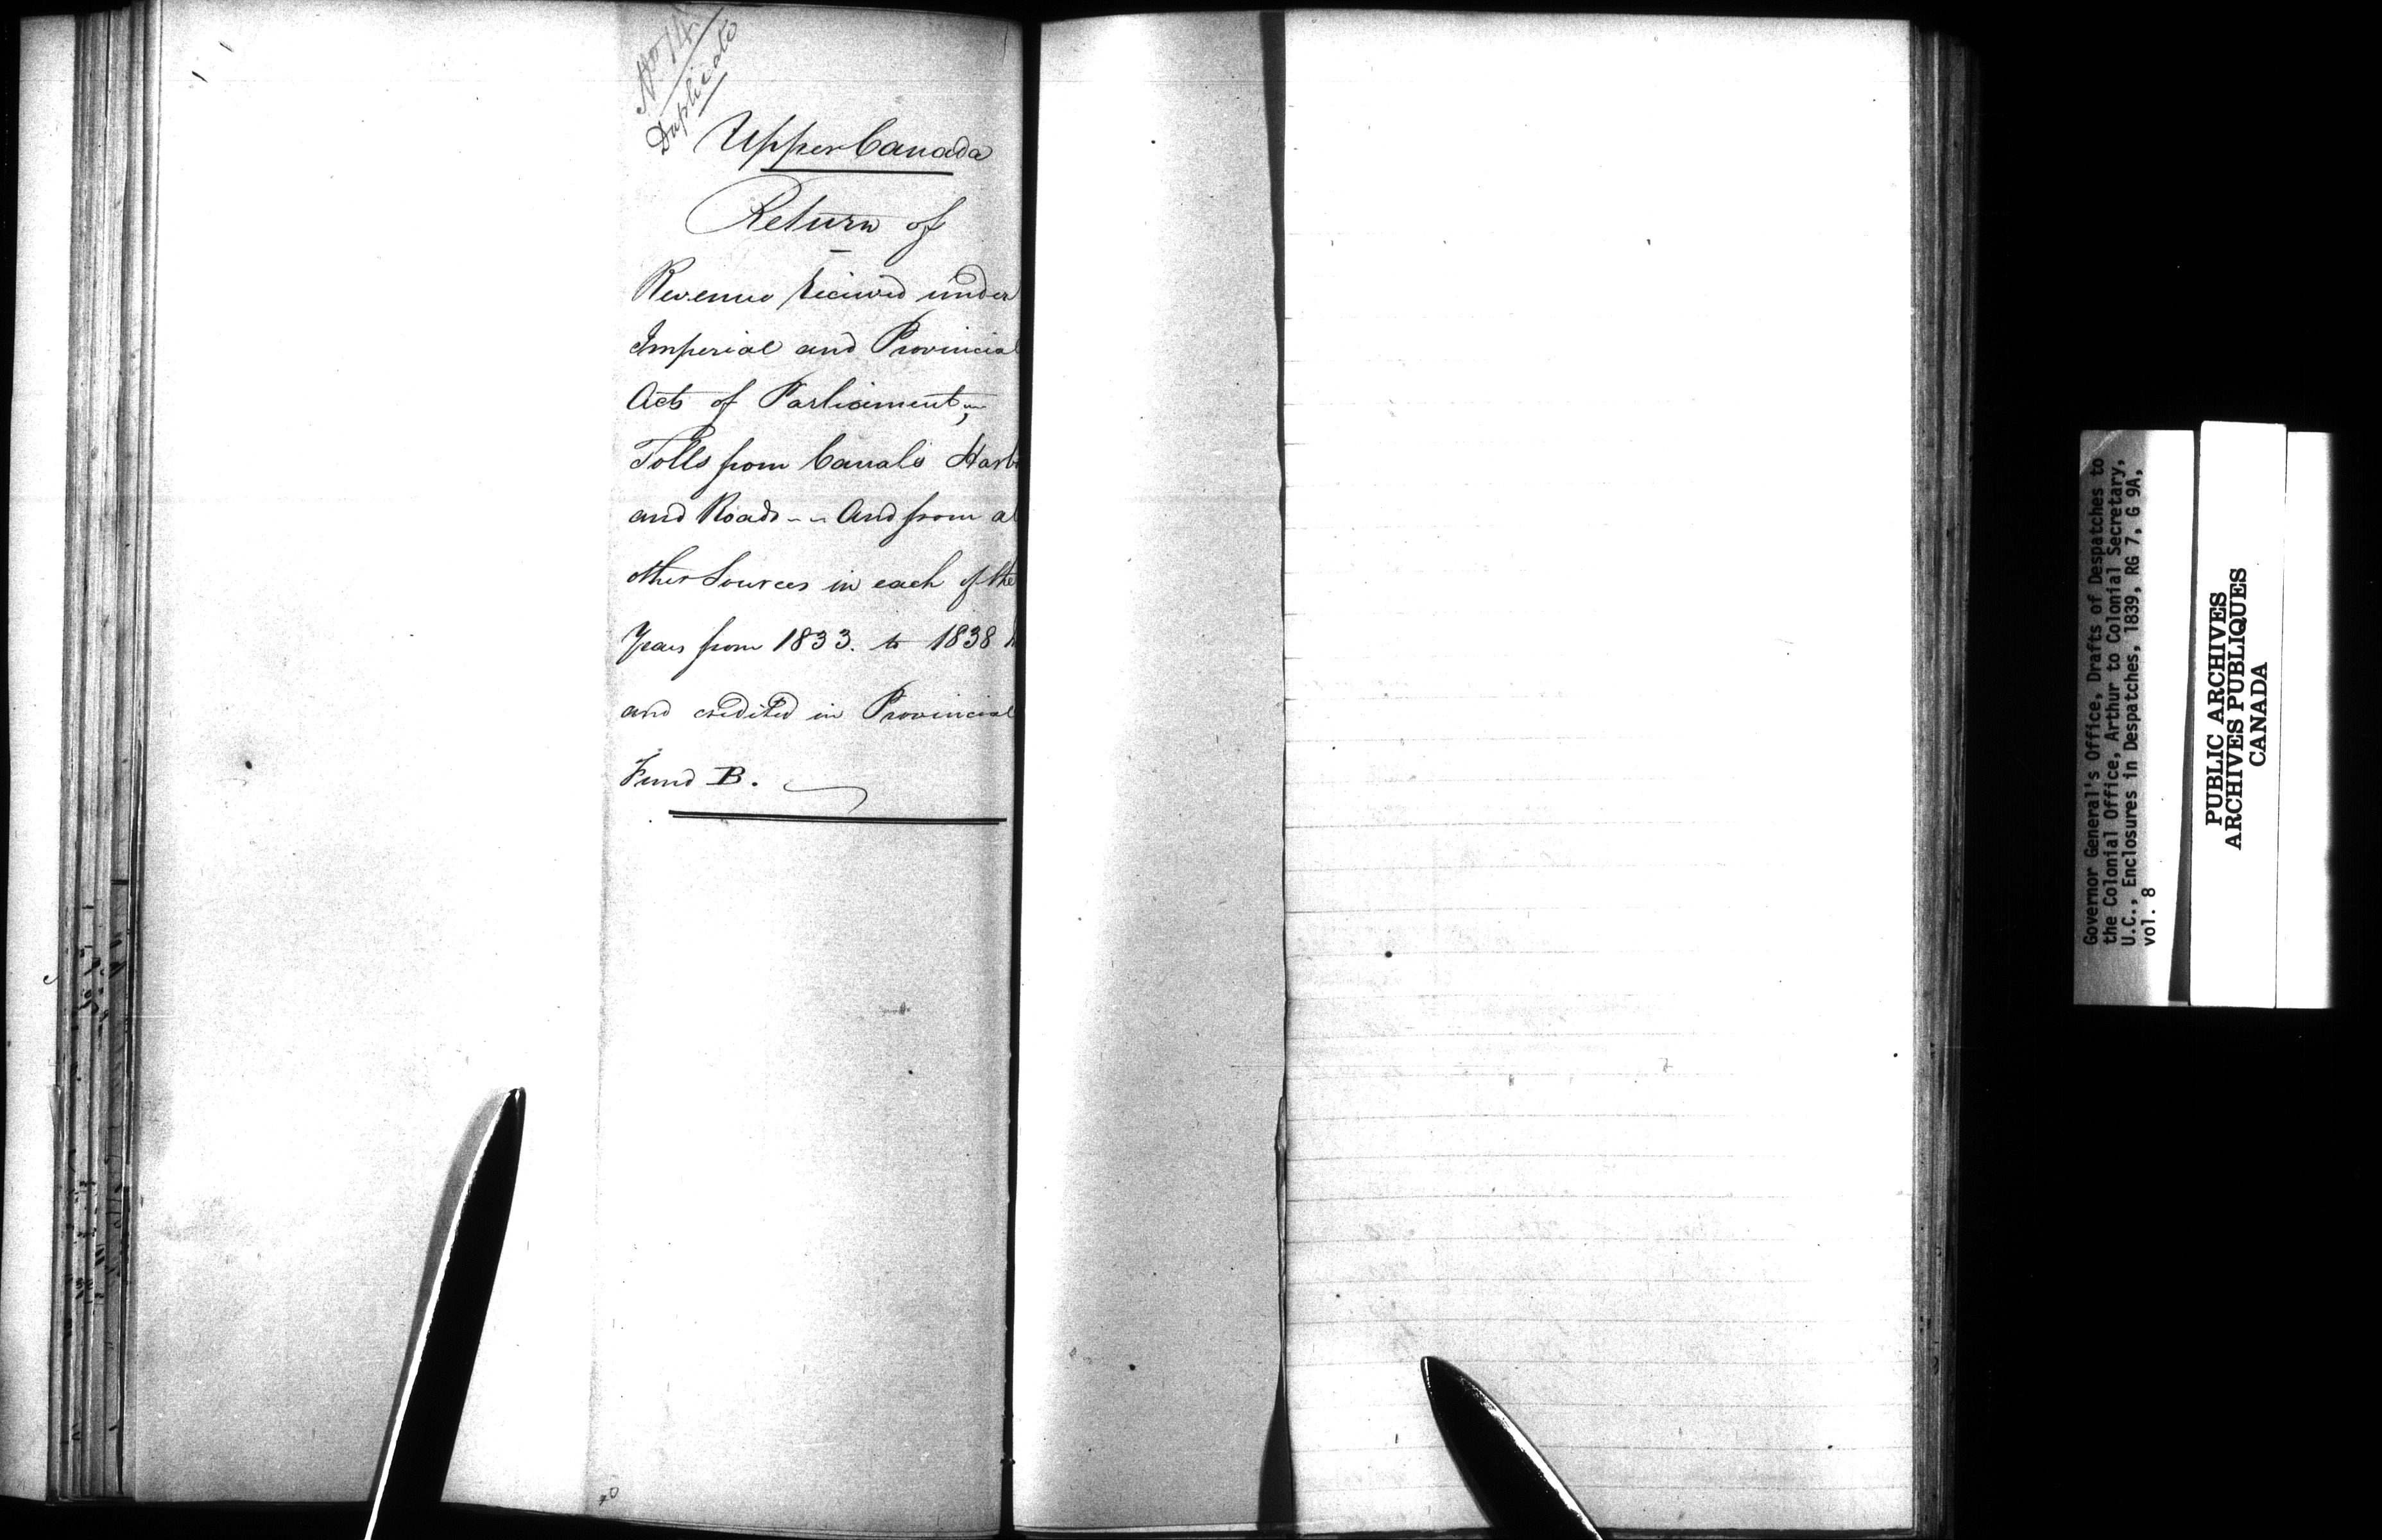 No 14
Duplicate
Upper Canada
Return of
Revenue received under
Imperial and Provincial
Acts of Parliament,
Tolls from Canals Harb
and Roads -- And from al
other Sources in each of the
Years from 1833. to 1838
and credited in Provincial
Fund B.
Governor General's Office, Drafts of Despatches to
the Colonial Office, Arthur to Colonial Secretary,
U.C., Enclosures in Despatches, 1839, RG 7, G 9A,
vol. 8
PUBLIC ARCHIVES
ARCHIVES PUBLIQUES
CANADA